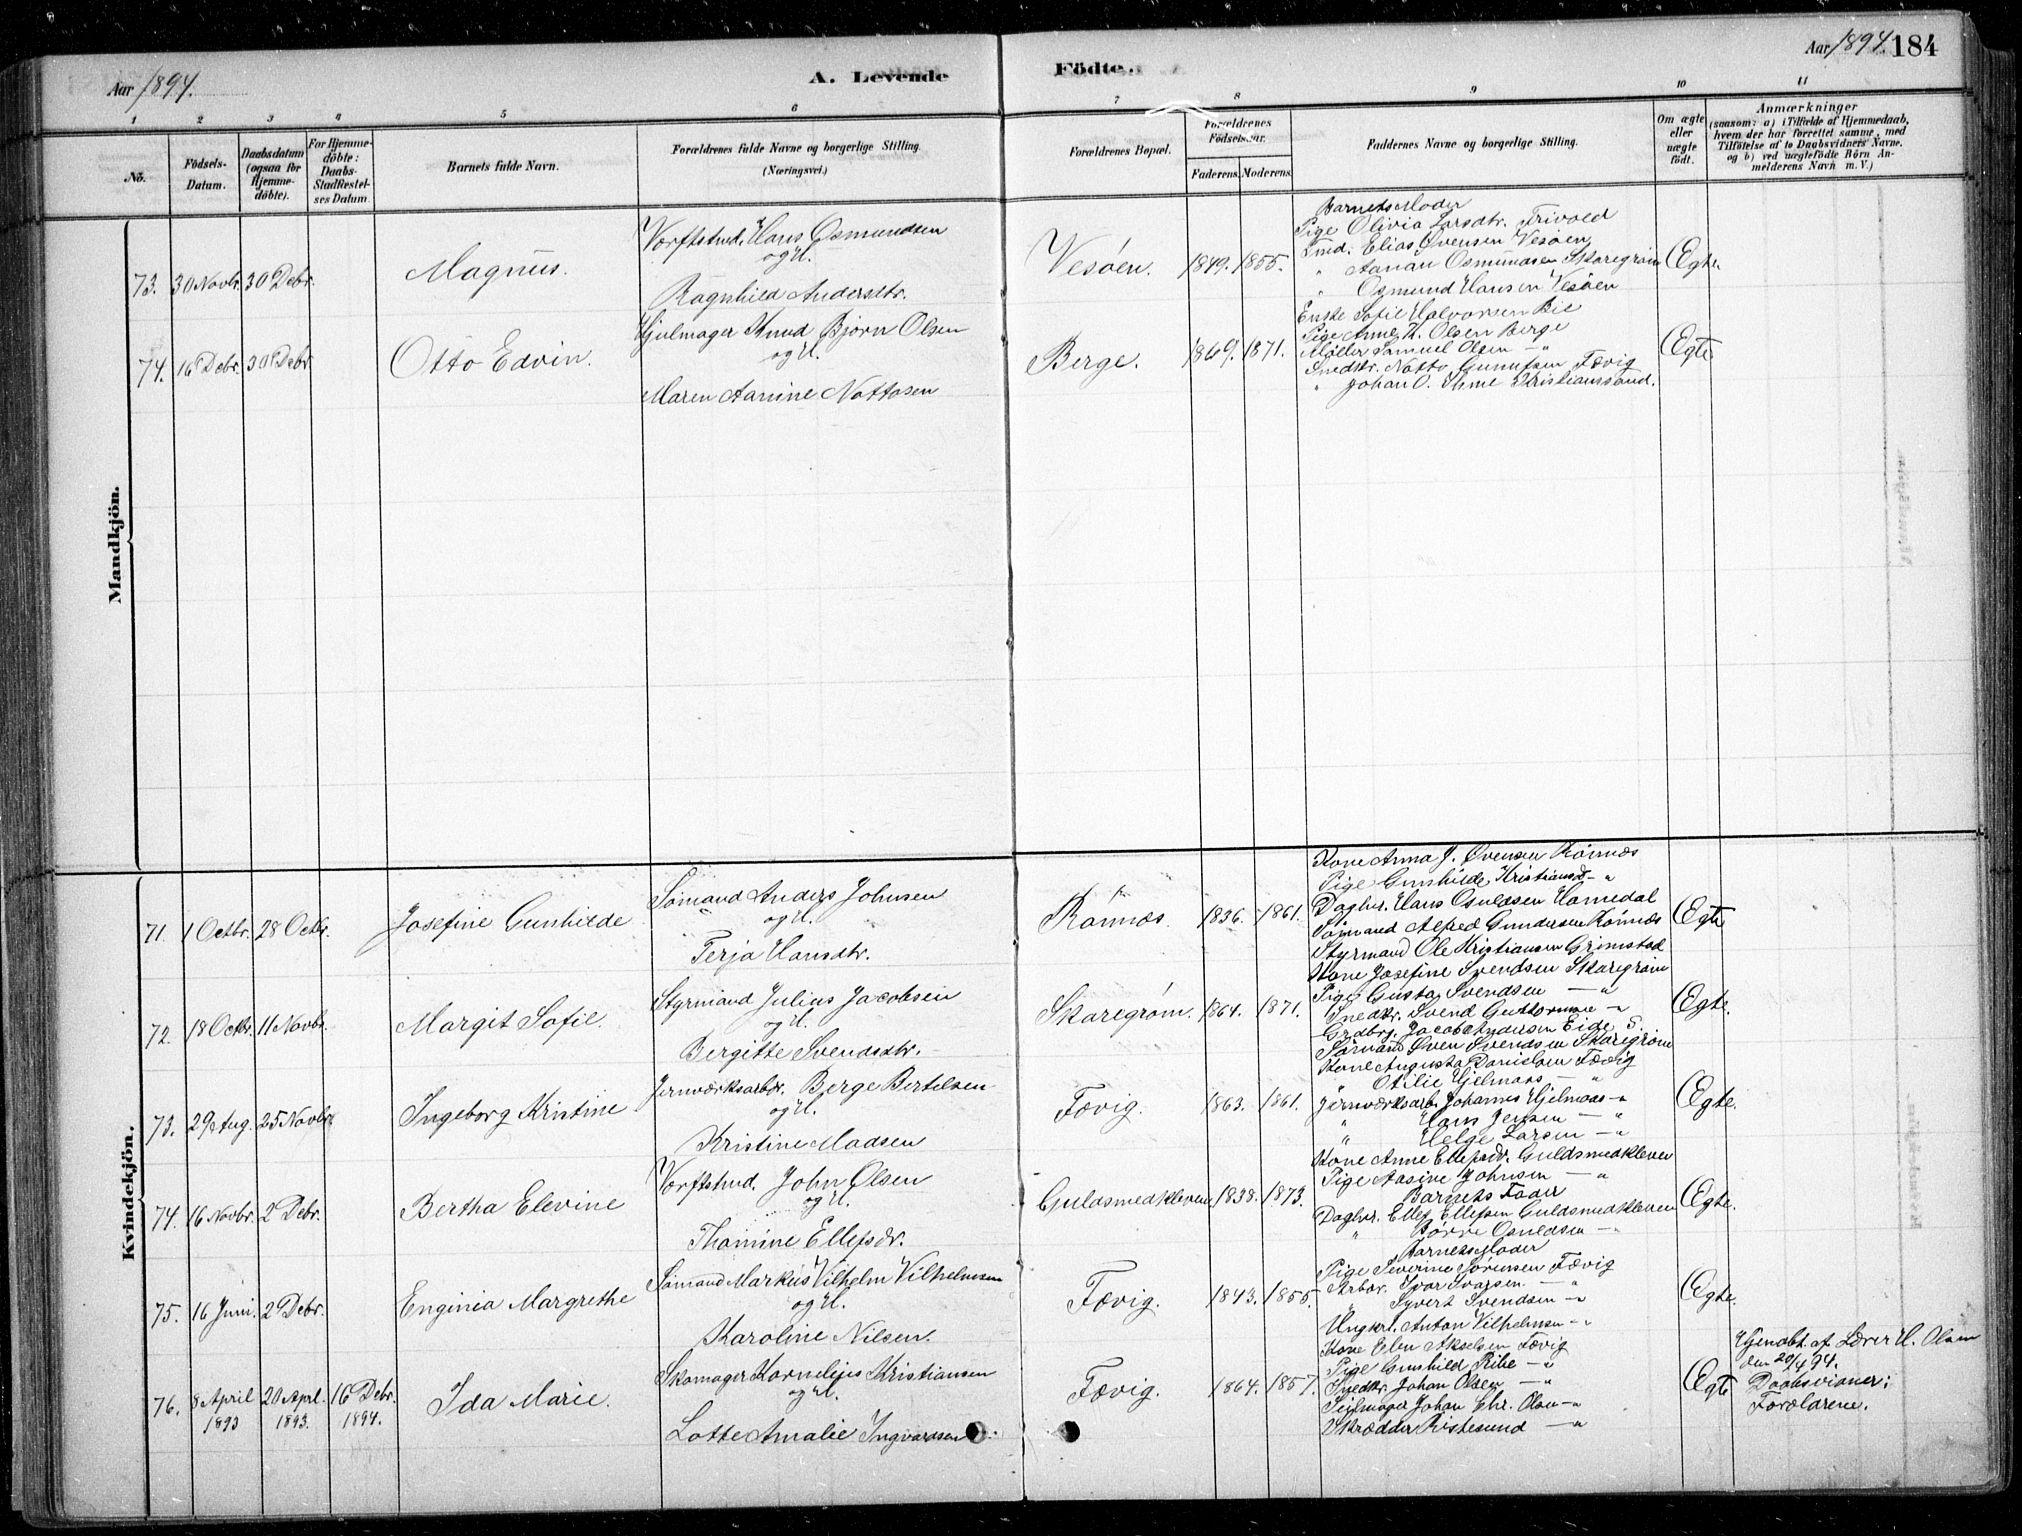 Aar 1894.
A. Levende
Födte.
Aar 1894. 184
1 2 3 4 5 6 7 8 9 10 11
No.
Födsels-Datum.
Daabsdatum (ogsaa for Hjemmedöbte).
For Hjemmedöbte: Daabs-Stadfæstelses Datum
Barnets fulde Navn.
Forældrenes fulde Navne og borgerlige Stilling. (Næringsvei.)
Forældrenes Bopæl.
Forældrenes Födselsaar.
Faderens. Moderens.
Faddernes Navne og borgerlige Stilling.
Om ægte eller uægte födt.
Anmærkninger
(saasom: a) i Tilfælde af Hjemmedaab, hvem der har forrettet samme, med Tilföielse af to Daabsvidners Navne. og b) ved uægtefödte Börn Anmelderens Navn m. V.)
Mandkjön.
73. 30 Novbr. 30 Debr.
Magnus.
Værftstmd. Hans Osmundsen
og H.
Ragnhild Andersdtr.
Vesøen. 1849. 1855.
Barnets Moder
Pige Olivia Larsdtr. Trivold
Tmd. Elias Øvensen Vesøen
" Aanan Osmundsen Skaregrøm
" Osmund Hansen Vesøen
Egte.
74. 16 Debr. 30 Debr.
Otto Edvin.
Hjulmager Knud Bjørn Olsen
og H.
Maren Aanine Nattosen
Berge. 1869. 1871.
Enke Sofie Halvorsen Bie
Pige Anne K. Olsen Berge
Møller Samuel Olsen - "
Snedkr. Natto Gunufsen Fævig
" Johan O. Kristianssand.
Egte
Kvindekjön.
71. 1 Octbr. 28 Octbr.
Josefine Gunhilde
Sømand Anders Johnsen
og H.
Terja Hansdtr.
Rønnes. 1836. 1861.
Kone Anna J. Øvensen Rønnæs
Pige Gunhilde Kristiansd - "
Dagbr. Hans Osuldsen Hamedal
Sømand Alfred Gundersen Rønnæs
Styrmand Ole Kristiansen Grimstad
Egte
72. 18 Octbr. 11 Novbr.
Margit Sofie.
Styrmand Julius Jacobsen
og H.
Bergitte Svendsdtr.
Skaregrøm. 1864. 1871.
Kone Josefine Svendsen Skaregrøm
Pige Gusta Svendsen - "
Snedkr. Svend Guttormsen - "
Grdbrg. Jacob Andersen Eide S.
Sømand Øven Svendsen Skaregrøm
Egte.
73. 29 Aug. 25 Novbr.
Ingeborg Kristine
Jernværksarbdr. Berge Bertelsen
og H.
Kristine Madsen
Fævig. 1863. 1861.
Kone Augusta Danielsen Fævig
" Otilie Hjelmaas "
Jernværksarb. Johannes Hjelmaas - "
" Hans Jensen - "
" Helge Larsen - "
Egte.
74. 16 Novbr. 2 Debr.
Bertha Elevine
Værftstmd. John Olsen
og H.
Thomine Ellefsdr.
Guldsmedkleven 1838. 1873.
Kone Anne Ellefsdr. Guldsmedkleven
Pige Aasine Johnsen - "
Barnets Fader
Dagbr. Ellef Ellefsen Guldsmedkleven
" Børre Osuldsen - "
Egte.
75. 16 Juni. 2 Debr.
Enginia Margrethe
Sømand Markus Vilhelm Vilhelmsen
og H.
Karoline Nilsen.
Fævig. 1843. 1855.
Barnets Moder
Pige Severine Sørensen Fævig
Arbdr. Ivar Ivarsen - "
" Syvert Svendsen - "
Ungkrl. Anton Vilhelmsen - "
Egte.
76. 8 April 1893 20 Aprl. 1893. 16 Debr. 1894.
Ida Marie.
Skomager Kornelius Kristiansen
og H.
Lotte Amalie Ingvardsen
Fævig. 1864. 1857.
Kone Elen Akselsen Fævig
Pige Gunhild Ribe - "
Snedkr. Johan Olsen - "
Seilmager Johan Chr. Olsen - "
Skrædder Ristesund - "
Egte
Hjemdøbt af Lærer H. Olsen
den 20/4 94.
Daabsvidner:
Forældrene.